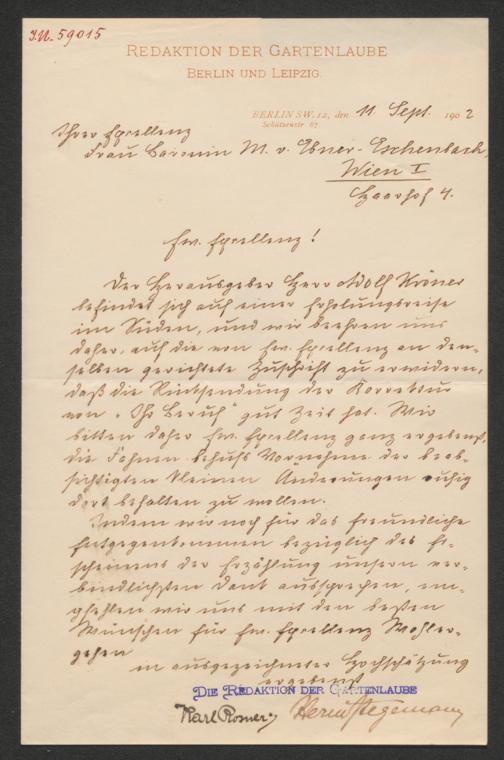 J.N. 59015
REDAKTION DER GARTENLAUBE
BERLIN UND LEIPZIG.
BERLIN SW. 12, den 11 Sept. 1902
Schützenstr. 67
Ihrer Exzellenz
Frau Baronin M. v. Ebner-Eschenbach,
Wien I
Haarhof 4.
Ew. Exzellenz!
Der Herausgeber Herr Adolf Kröner
befindet sich auf einer Erholungsreise
im Süden, und wir beehren uns
daher, auf die von Ew. Exzellenz an den-
selben gerichtete Zuschrift zu erwidern,
daß die Rücksendung der Korrektur
von "Ihr Beruf" gut Zeit hat. Wir
bitten daher Ew. Exzellenz ganz ergebenst,
die Fahnen behufs Vornahme der beab-
sichtigten kleinen Änderungen ruhig
dort behalten zu wollen.
Indem wir noch für das freundliche
Entgegenkommen bezüglich des Er-
scheinens der Erzählung unsern ver-
bindlichsten Dank aussprechen, em-
pfehlen wir uns mit den besten
Wünschen für Ew. Exzellenz Wohler-
gehen
in ausgezeichneter Hochschätzung
ergebenst
DIE REDAKTION DER GARTENLAUBE
Karl Rosner; Hermann Stegemann